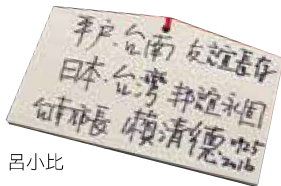 平戶·台南 友誼長存
日本·台灣 邦誼永固
台南市長 賴清德 7/25 2016
呂小比